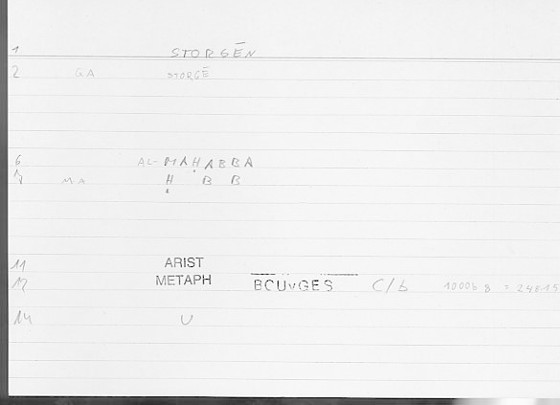 1 STORGĒN
2 GA STORGĒ
6 AL- MAḤABBA
MA Ḥ B B
11 ARIST
12 METAPH BOUYGES C/b 1000b 8
14 U